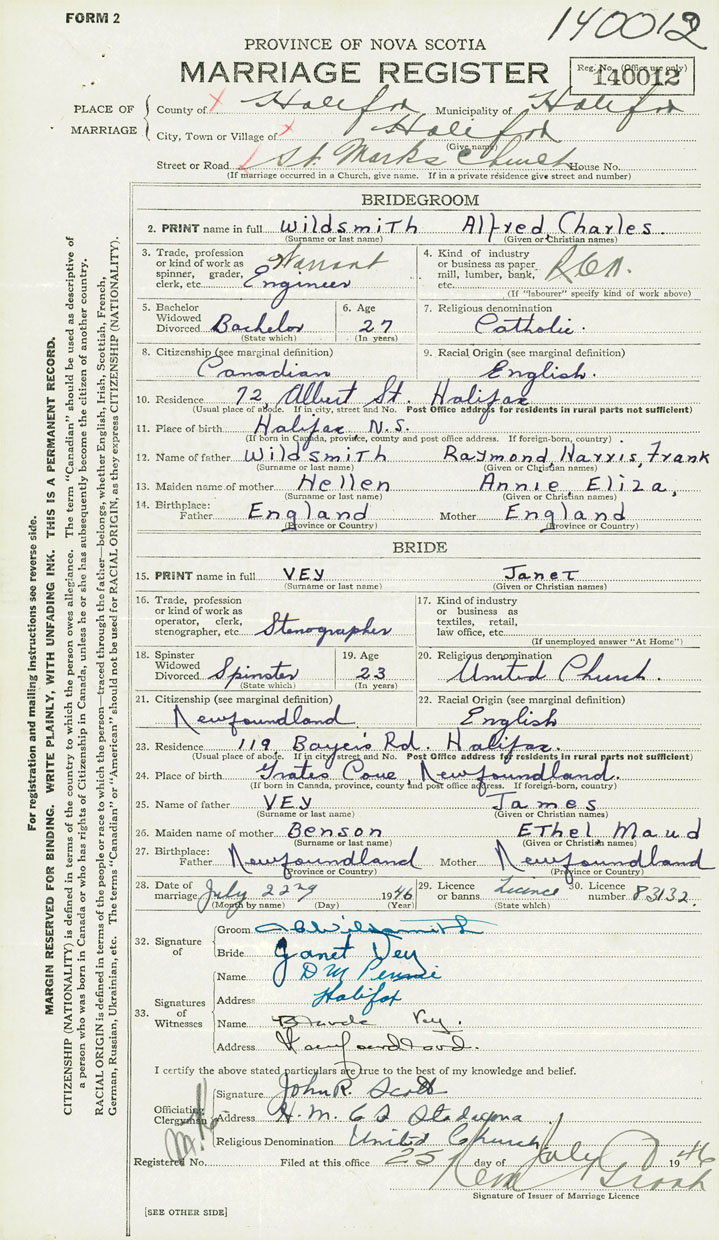 FORM 2
140012
PROVINCE OF NOVA SCOTIA
MARRIAGE REGISTER
Reg. No. (Office use only)
140012
PLACE OF MARRIAGE
County of Halifax Municipality of Halifax
City, Town or Village of Halifax
(Give name)
Street or Road St. Marks Church House No.
(If marriage occurred in a Church, give name. If in a private residence give street and number)
BRIDEGROOM
2. PRINT name in full Wildsmith Alfred Charles.
(Surname or last name) (Given or Christian names)
3. Trade, profession or kind of work as spinner, grader, clerk, etc. Warrant Engineer
4. Kind of industry or business as paper mill, lumber, bank, etc. R.C.N.
(If "labourer" specify kind of work above)
5. Bachelor Widowed Divorced Bachelor
(State which)
6. Age 27
(In years)
7. Religious denomination
Catholic.
8. Citizenship (see marginal definition)
Canadian
9. Racial Origin (see marginal definition)
English.
10. Residence 72, Albert St. Halifax
(Usual place of abode. If in city, street and No. Post Office address for residents in rural parts not sufficient)
11. Place of birth Halifax N.S.
(If born in Canada, province, county and post office address. If foreign-born, country)
12. Name of father Wildsmith Raymond, Harris, Frank
(Surname or last name) (Given or Christian names)
13. Maiden name of mother Hellen Annie, Eliza,
(Surname or last name) (Given or Christian names)
14. Birthplace: Father England Mother England
(Province or Country) (Province or Country)
BRIDE
15. PRINT name in full VEY Janet
(Surname or last name) (Given or Christian names)
16. Trade, profession or kind of work as operator, clerk, stenographer, etc. Stenographer
17. Kind of industry or business as textiles, retail, law office, etc.
(If unemployed answer "At Home")
18. Spinster Widowed Divorced Spinster
(State which)
19. Age 23
(In years)
20. Religious denomination
United Church.
21. Citizenship (see marginal definition)
Newfoundland
22. Racial Origin (see marginal definition)
English
23. Residence 119, Bayers Rd. Halifax.
(Usual place of abode. If in city street and No. Post Office address for residents in rural parts not sufficient)
24. Place of birth Grates Cove, Newfoundland.
(If born in Canada, province, county and post office address. If foreign-born, country)
25. Name of father VEY James
(Surname or last name) (Given or Christian names)
26. Maiden name of mother Benson Ethel Maud
(Surname or last name) (Given or Christian names)
27. Birthplace: Father Newfoundland Mother Newfoundland
(Province or Country) (Province or Country)
28. Date of marriage July 22nd 1946
(Month by name) (Day) (Year)
29. Licence or banns Licence
(State which)
30. Licence number 83132.
32. Signature of
Groom ACWildsmith
Bride Janet Vey
33. Signatures of Witnesses
Name D M
Address Halifax
Name Vey.
Address Newfoundland.
I certify the above stated particulars are true to the best of my knowledge and belief.
Officiating Clergyman
Signature John R. Scott
Address H.M.C.S Stadacona
Religious Denomination United Church
Registered No. Filed at this office 25 day of July 1946
Signature of Issuer of Marriage Licence
[SEE OTHER SIDE]
For registration and mailing instructions see reverse side.
MARGIN RESERVED FOR BINDING. WRITE PLAINLY, WITH UNFADING INK. THIS IS A PERMANENT RECORD.
CITIZENSHIP (NATIONALITY) is defined in terms of the country to which the person owes allegiance. The term "Canadian" should be used as descriptive of
a person who was born in Canada or who has rights of Citizenship in Canada, unless he or she has subsequently become the citizen of another country.
RACIAL ORIGIN is defined in terms of the people or race to which the person—traced through the father—belongs, whether English, Irish, Scottish, French,
German, Russian, Ukrainian, etc. The terms "Canadian" or "American" should not be used for RACIAL ORIGIN, as they express CITIZENSHIP (NATIONALITY).